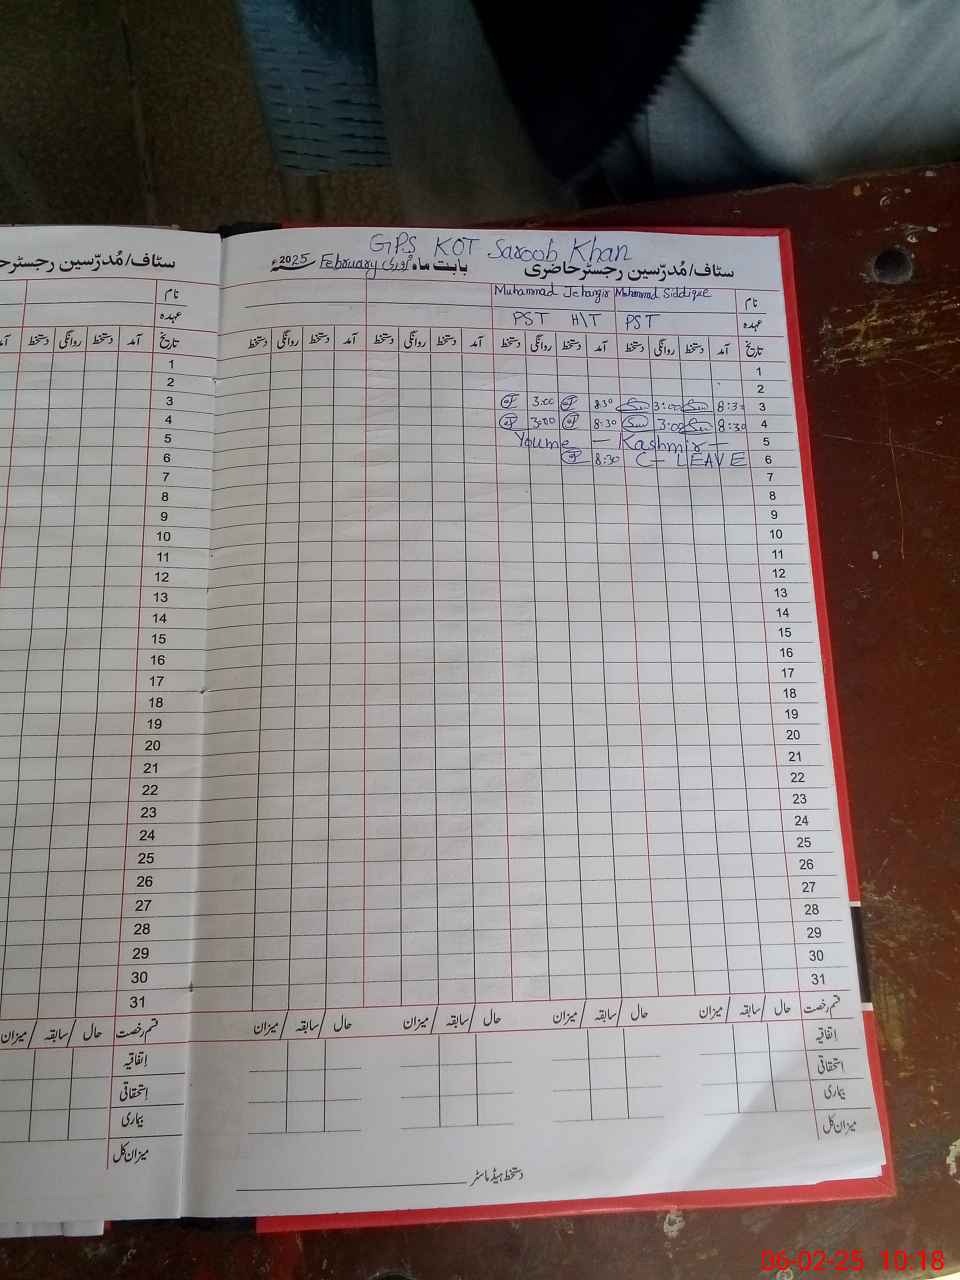 GPS KOT Saroob Khan
سٹاف/مُدرّسین رجسٹر حاضری بابت ماہ فروری February 2025ء
نام Mohammad Siddique Muhammad Jehangir
عہدہ PST PST H/T
تاریخ آمد دستخط روانگی دستخط آمد دستخط روانگی دستخط آمد دستخط روانگی دستخط آمد دستخط روانگی دستخط
1
2
3 8:30 3:00 8:30 3:00
4 8:30 3:00 8:30 3:00
5 Youme - Kashmir -
6 C - LEAVE 8:30
7
8
9
10
11
12
13
14
15
16
17
18
19
20
21
22
23
24
25
26
27
28
29
30
31
قسم رخصت حال / سابقہ / میزان حال / سابقہ / میزان حال / سابقہ / میزان حال / سابقہ / میزان
اتفاقیہ
استحقاقی
بیماری
میزان کل
دستخط ہیڈ ماسٹر
سٹاف/مُدرّسین رجسٹر
نام
عہدہ
تاریخ آمد دستخط روانگی دستخط
1
2
3
4
5
6
7
8
9
10
11
12
13
14
15
16
17
18
19
20
21
22
23
24
25
26
27
28
29
30
31
قسم رخصت حال / سابقہ / میزان
اتفاقیہ
استحقاقی
بیماری
میزان کل
06-02-25 10:18